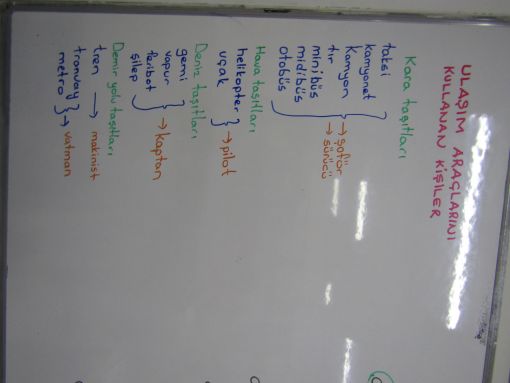 ULAŞIM ARAÇLARINI
KULLANAN KİŞİLER
Kara taşıtları
taksi
kamyonet
kamyon → şoför
tır → sürücü
minibüs
midibüs
otobüs
Hava taşıtları
helikopter
uçak → pilot
Deniz taşıtları
gemi
vapur → kaptan
feribot
şilep
Demir yolu taşıtları
tren → makinist
tramvay
metro → vatman